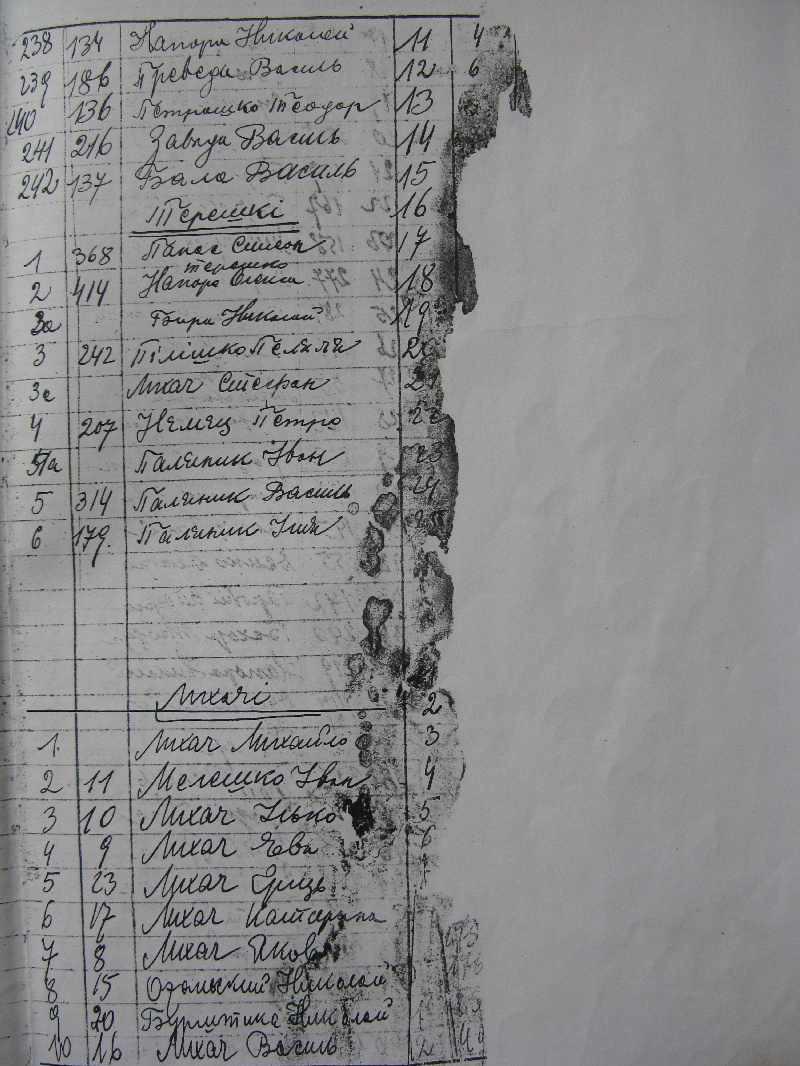 238 134 Напора Николай 11 4
239 186 Преведа Василь 12 6
240 136 Петрошко Теодор 13
241 216 Завида Василь 14
242 137 Бало Василь 15
Терешкі 16
1 368 Панас Симеон 17
терешко
2 414 Напора Олекса 18
Николай 19
3 242 Пілішко Пелагія 20
3с Лихач Стефан 21
4 207 Немец Петро 22
Паляник Іван 23
5 314 Паляник Василь 24
6 179. Паляник Ілія 25
1
Лихачі 2
1. Лихач Михайло 3
2 11 Мелешко Іван 4
3 10 Лихач Ілько 5
4 9 Лихач Ева 6
5 23 Лихач Гриць 7
6 17 Лихач Катерина
7 8 Лихач Яков
8 15 Николай
9 20 Николай
10 16 Лихач Василь